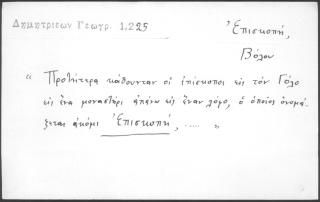 Δημητριεων Γεωγρ. 1,225
Ἐπισκοπή,
Βόλου
" Προτήτερα κάθουνταν οἱ ἐπίσκοποι εἰς τὸν Γόλο
εἰς ἕνα μοναστήρι ἀπάνω εἰς ἕναν λόφο, ὁ ὁποῖος ὀνομά-
ζεται ἀκόμι Ἐπισκοπή, ..... "